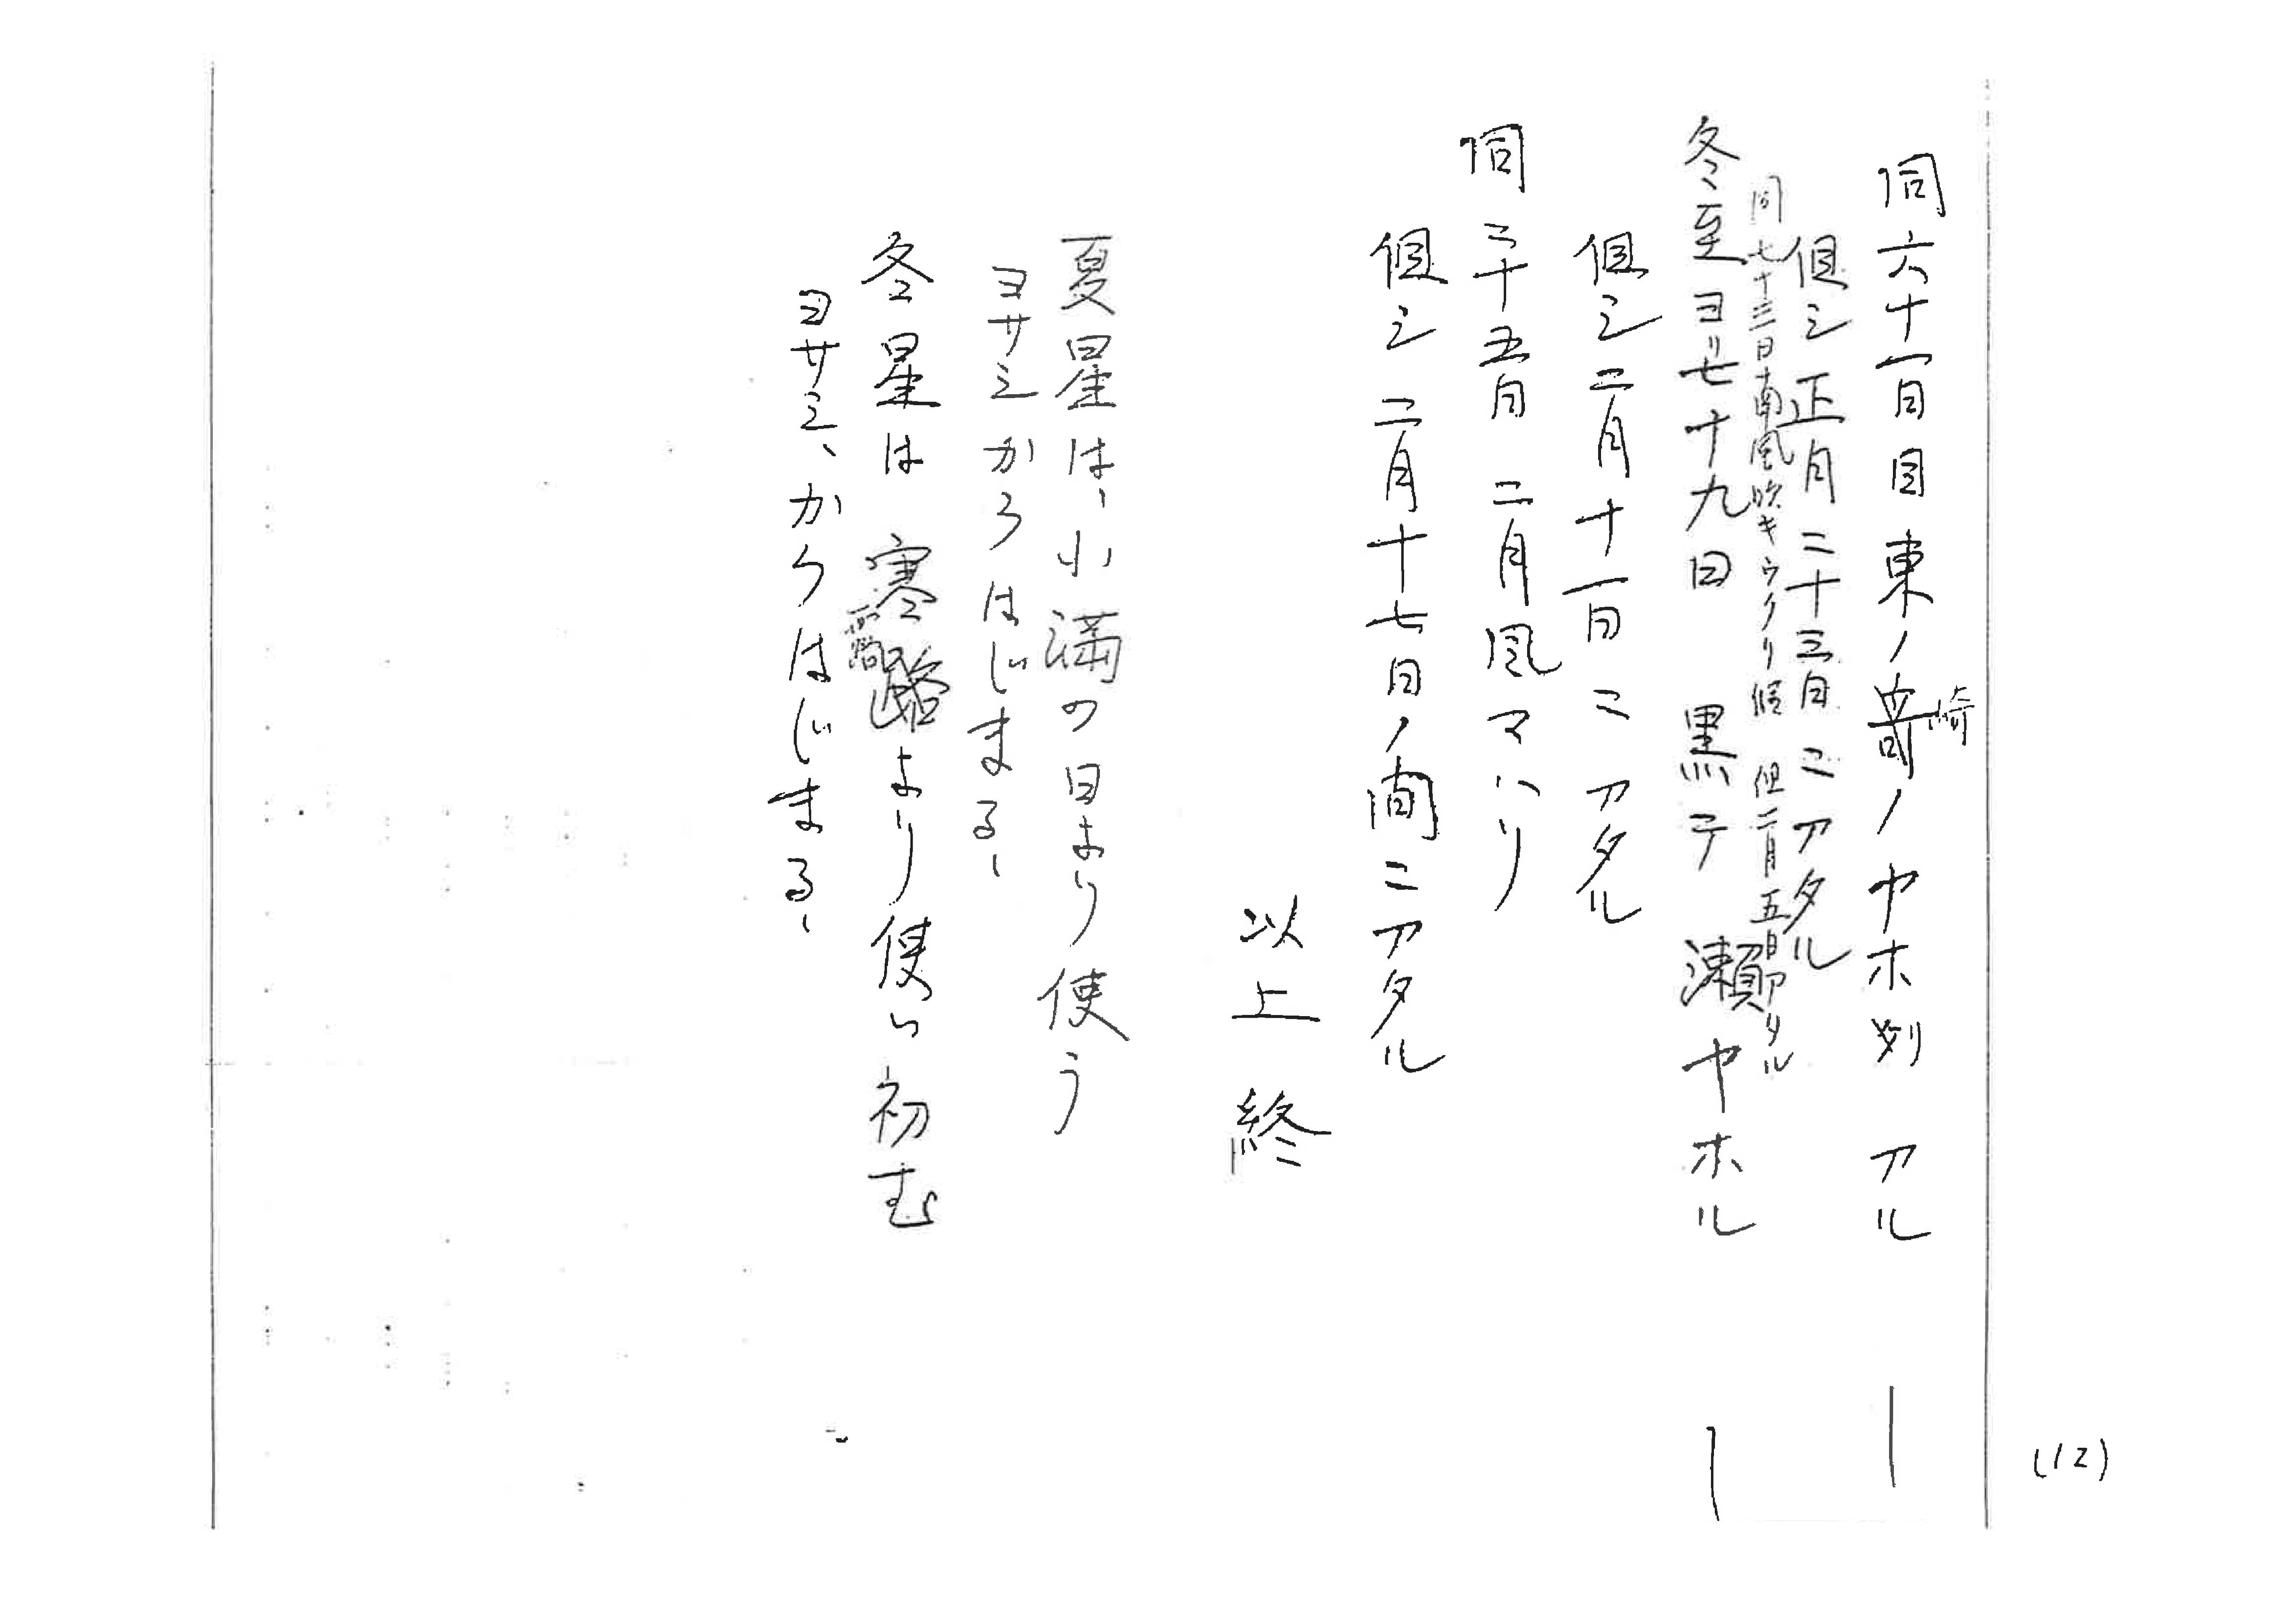 同六十一日目東ノ崎ノヤホ划アル
但シ正月二十三日ニアタル
同七十三日南風吹キウクリ候 但二月五日アタル
冬至ヨリ七十九日 黒子瀬ヤホル
但シ二月十一日ニアタル
同二十五日 二月風マハリ
但シ二月十七日ノ間ニアタル
以上終
夏星は、小満の日より使う
ヨサシからはじまる、
冬星は 寒路より使い初む
ヨサミ、からはじまる、
(12)